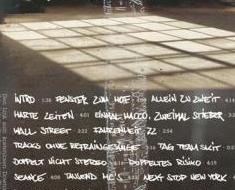 INTRO 1:38 FENSTER ZUM HOF 4:04 ALLEIN ZU ZWEIT 4:14
HARTE ZEITEN 4:01 EINMAL MACCO, ZWEIMAL STIEBER 3:36
WALL STREET 3:22 FAHRENHEIT 72 2:54
TRACKS OHNE REFRAINGESÄNGE TAG TEAM SKIT
DOPPELT NICHT STEREO 4:19 DOPPELTES RISIKO 4:15
SEANCE 4:16 TAUSEND MC'S NEXT STOP NEW YORK